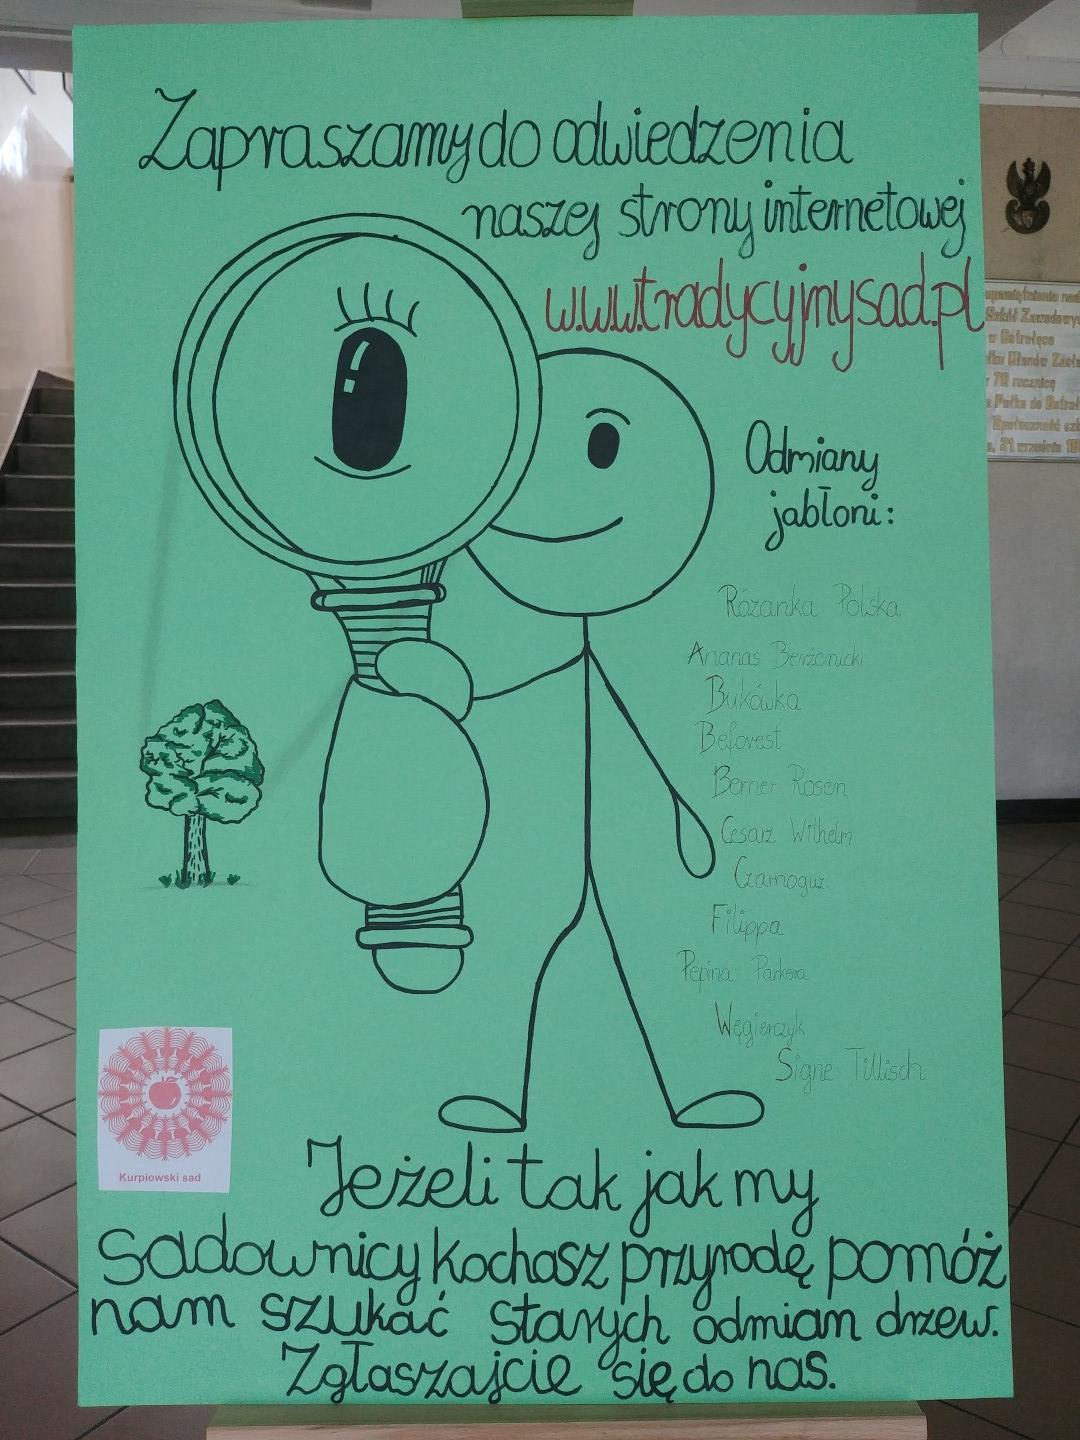 Zapraszamy do odwiedzenia
naszej strony internetowej
www.tradycyjnysad.pl
Odmiany
jabłoni:
Różanka Polska
Ananas Berżenicki
Bukówka
Beforest
Berner Rosen
Cesarz Wilhelm
Czarnoguz
Filippa
Pepina Parkera
Węgierczyk
Signe Tillisch
Kurpiowski sad
Jeżeli tak jak my
sadownicy kochasz przyrodę pomóż
nam szukać starych odmian drzew.
Zgłaszajcie się do nas.
Szkół Zawodowy
w Ostrołęce
70 rocznicę
Społeczność
21 września